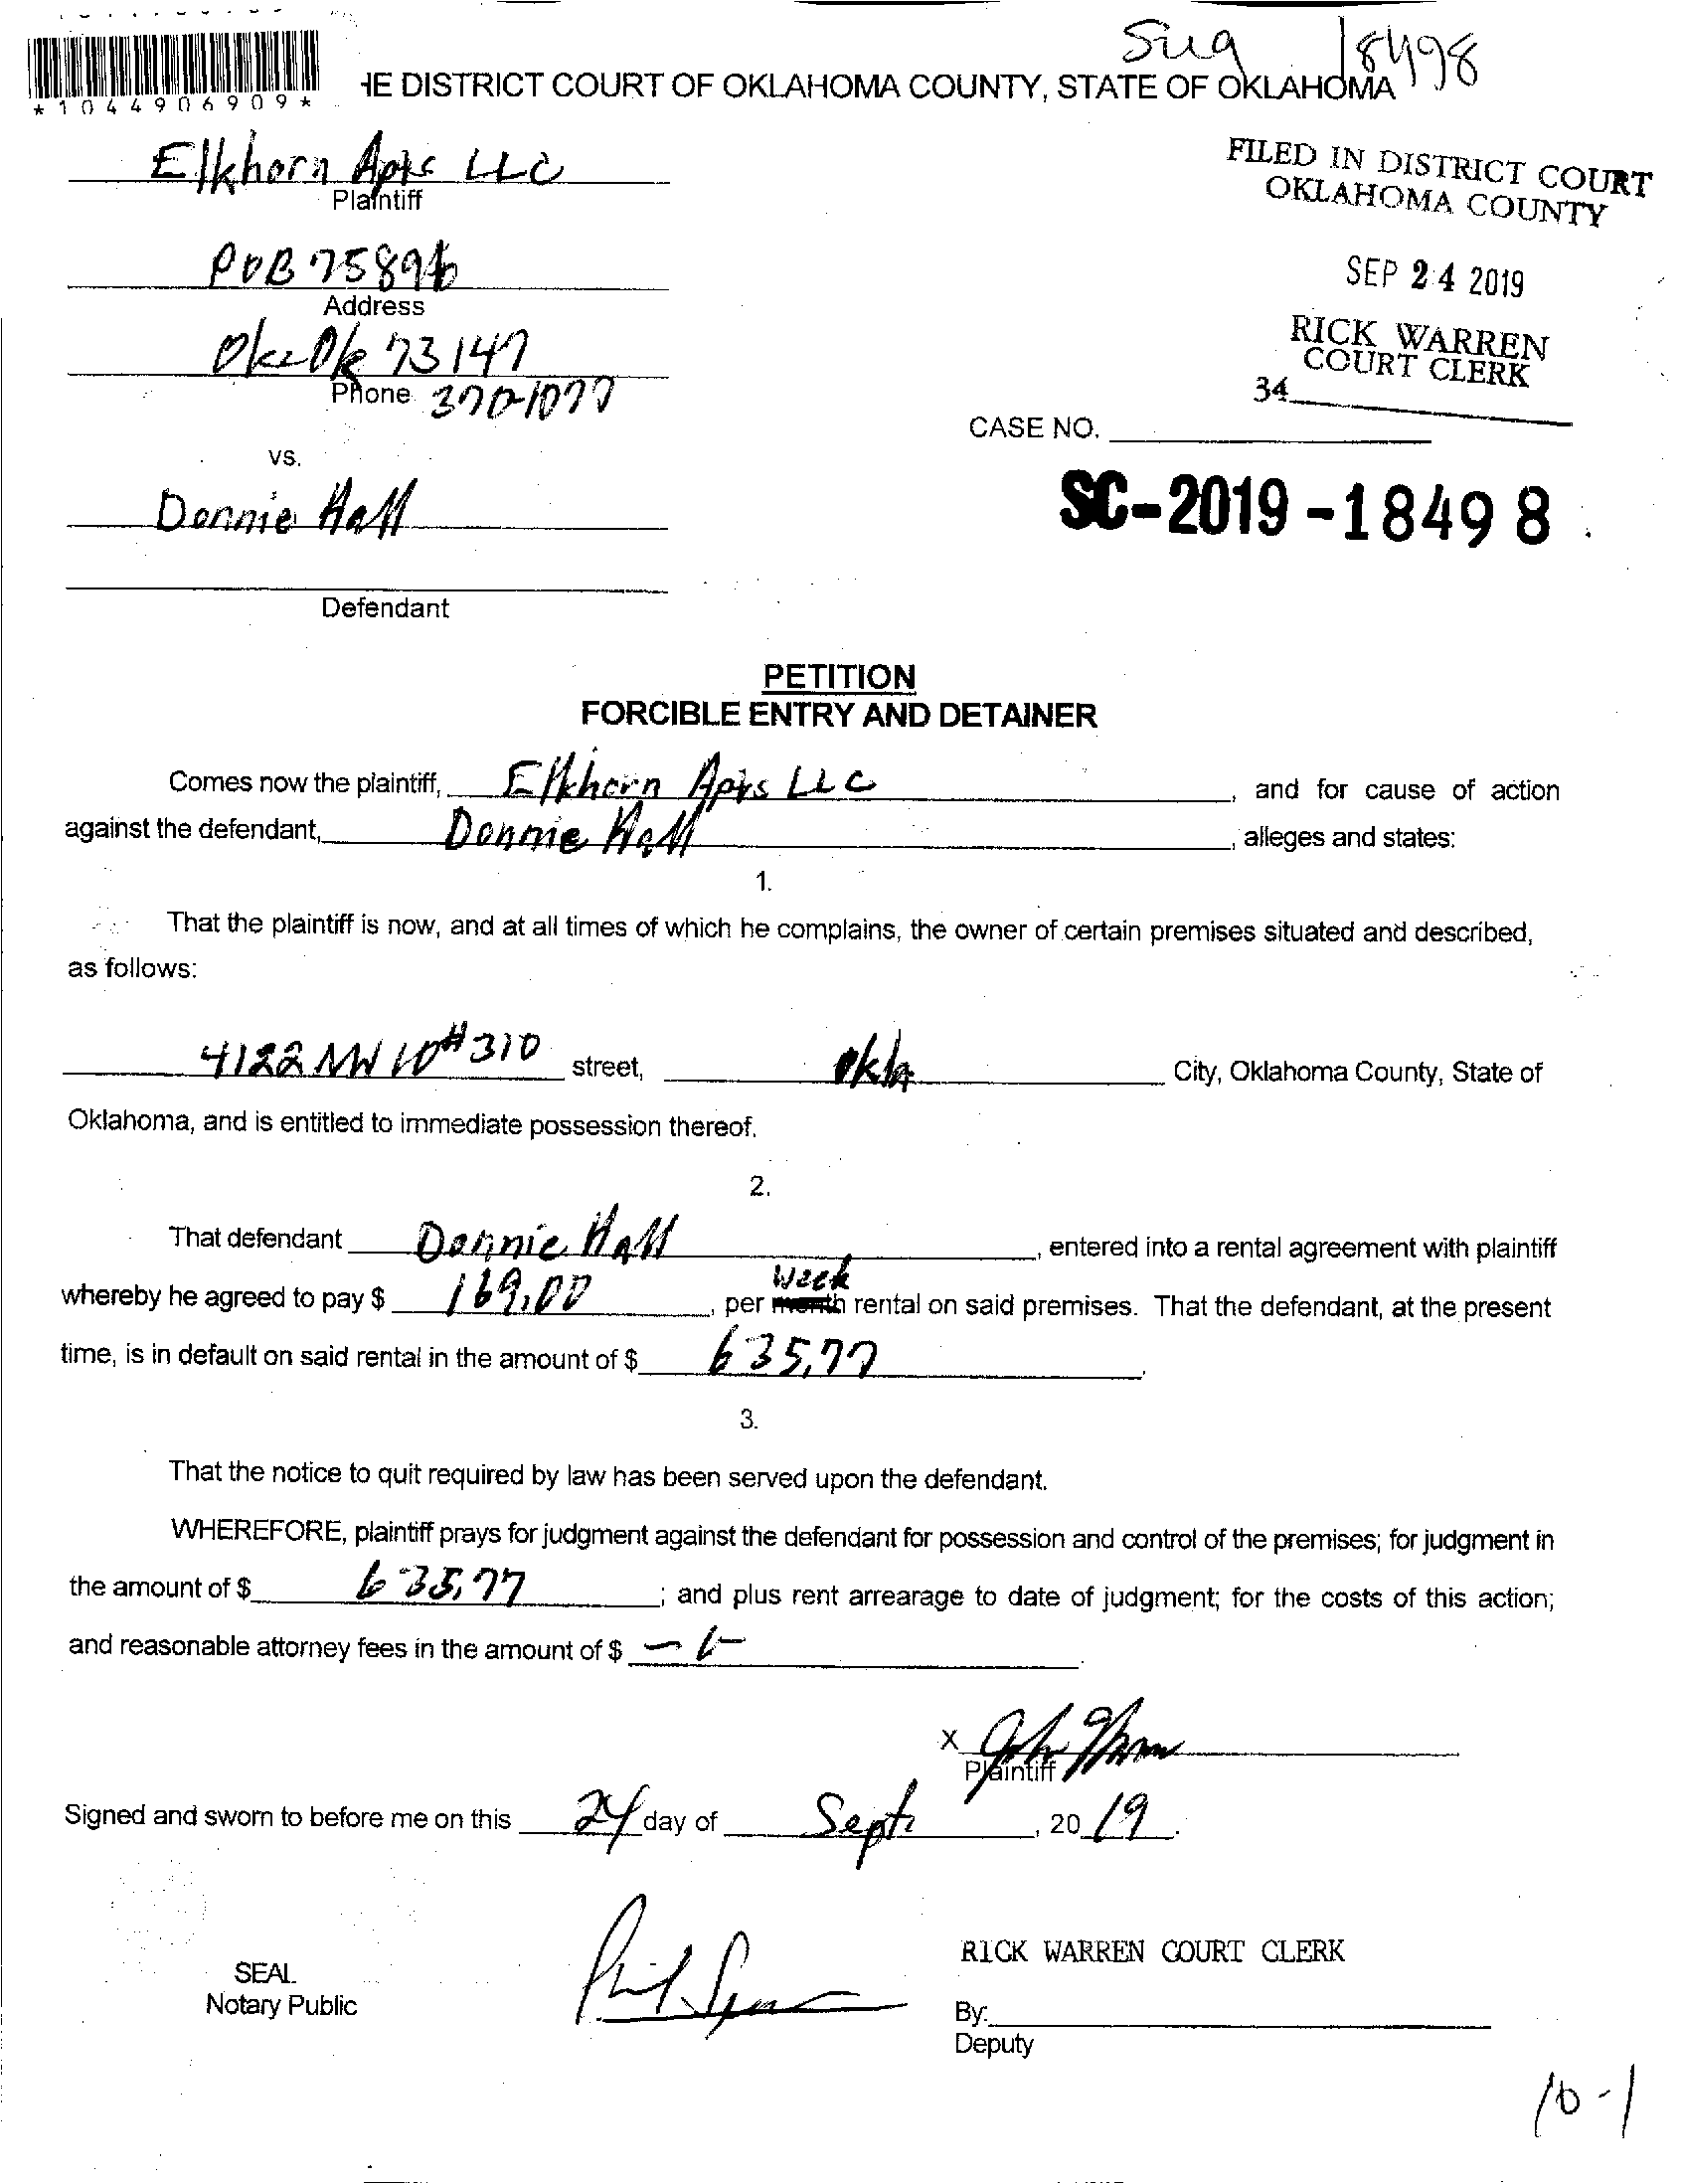 Sug 18498
*1044906909*
HE DISTRICT COURT OF OKLAHOMA COUNTY, STATE OF OKLAHOMA
Elkhorn Apts LLC
Plaintiff
FILED IN DISTRICT COURT
OKLAHOMA COUNTY
POB 75896
Address
SEP 24 2019
Okc Ok 73147
Phone 370-1077
RICK WARREN
COURT CLERK
34
CASE NO.
vs.
SC-2019-18498
Donnie Hall
Defendant
PETITION
FORCIBLE ENTRY AND DETAINER
Comes now the plaintiff, Elkhorn Apts LLC, and for cause of action
against the defendant, Donnie Hall, alleges and states:
1.
That the plaintiff is now, and at all times of which he complains, the owner of certain premises situated and described,
as follows:
4122 NW 10 #310 street, Okla City, Oklahoma County, State of
Oklahoma, and is entitled to immediate possession thereof.
2.
That defendant Donnie Hall, entered into a rental agreement with plaintiff
Week
whereby he agreed to pay $ 169.00, per month rental on said premises. That the defendant, at the present
time, is in default on said rental in the amount of $ 635.77.
3.
That the notice to quit required by law has been served upon the defendant.
WHEREFORE, plaintiff prays for judgment against the defendant for possession and control of the premises; for judgment in
the amount of $ 635.77; and plus rent arrearage to date of judgment; for the costs of this action;
and reasonable attorney fees in the amount of $
X
Plaintiff
Signed and sworn to before me on this 24 day of Sept, 20 19.
SEAL
Notary Public
RICK WARREN COURT CLERK
By:
Deputy
10-1